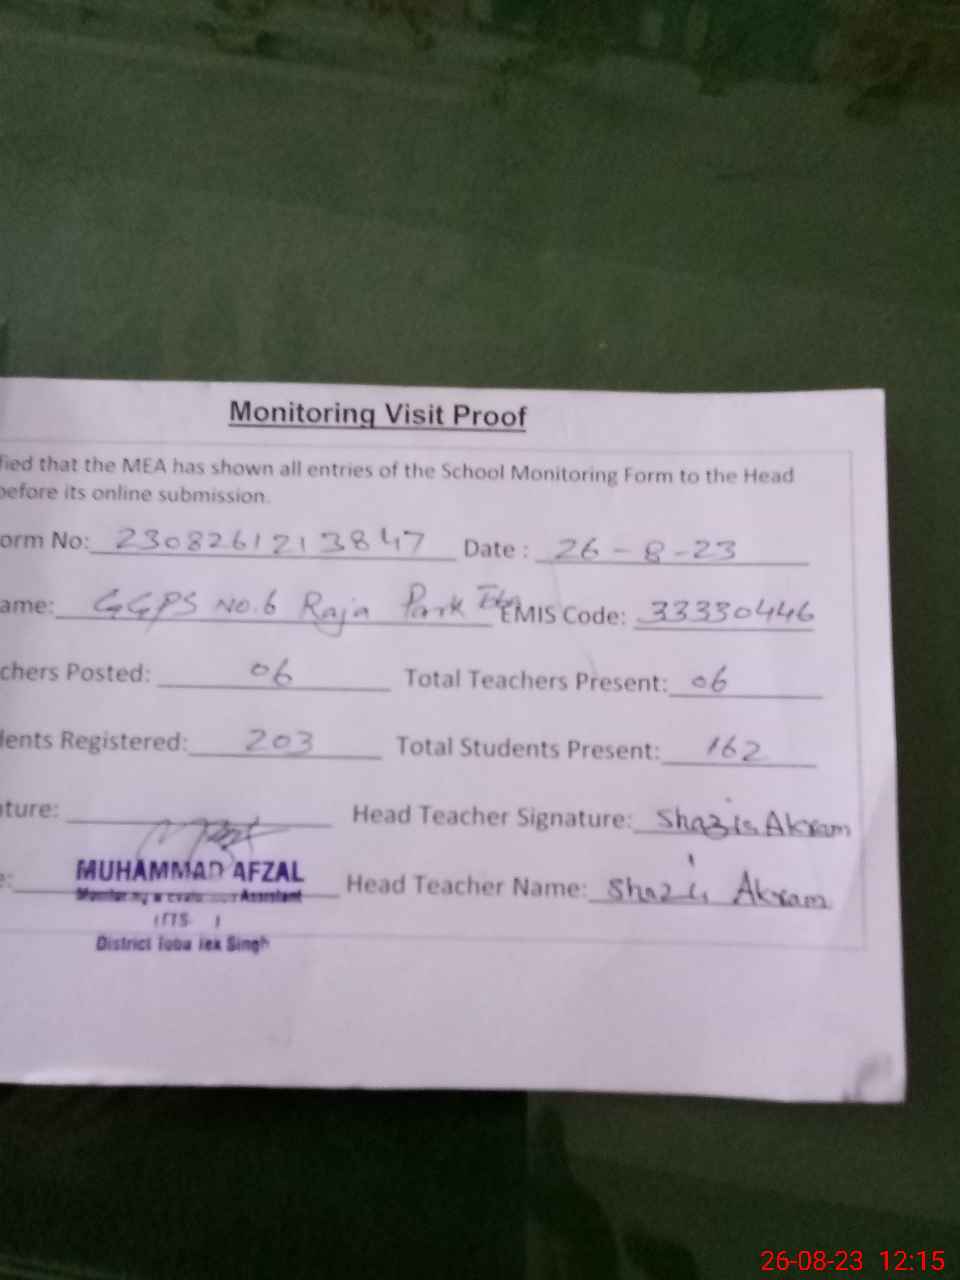 Monitoring Visit Proof
fied that the MEA has shown all entries of the School Monitoring Form to the Head
before its online submission.
orm No: 2308261213847 Date : 26-8-23
ame: GGPS No.6 Raja Park EMIS Code: 33330446
chers Posted: 06 Total Teachers Present: 06
lents Registered: 203 Total Students Present: 162
ture: Head Teacher Signature: Shazia Akram
MUHAMMAD AFZAL
e: Head Teacher Name: Shazia Akram
Assistant
District Toba Tek Singh
26-08-23 12:15